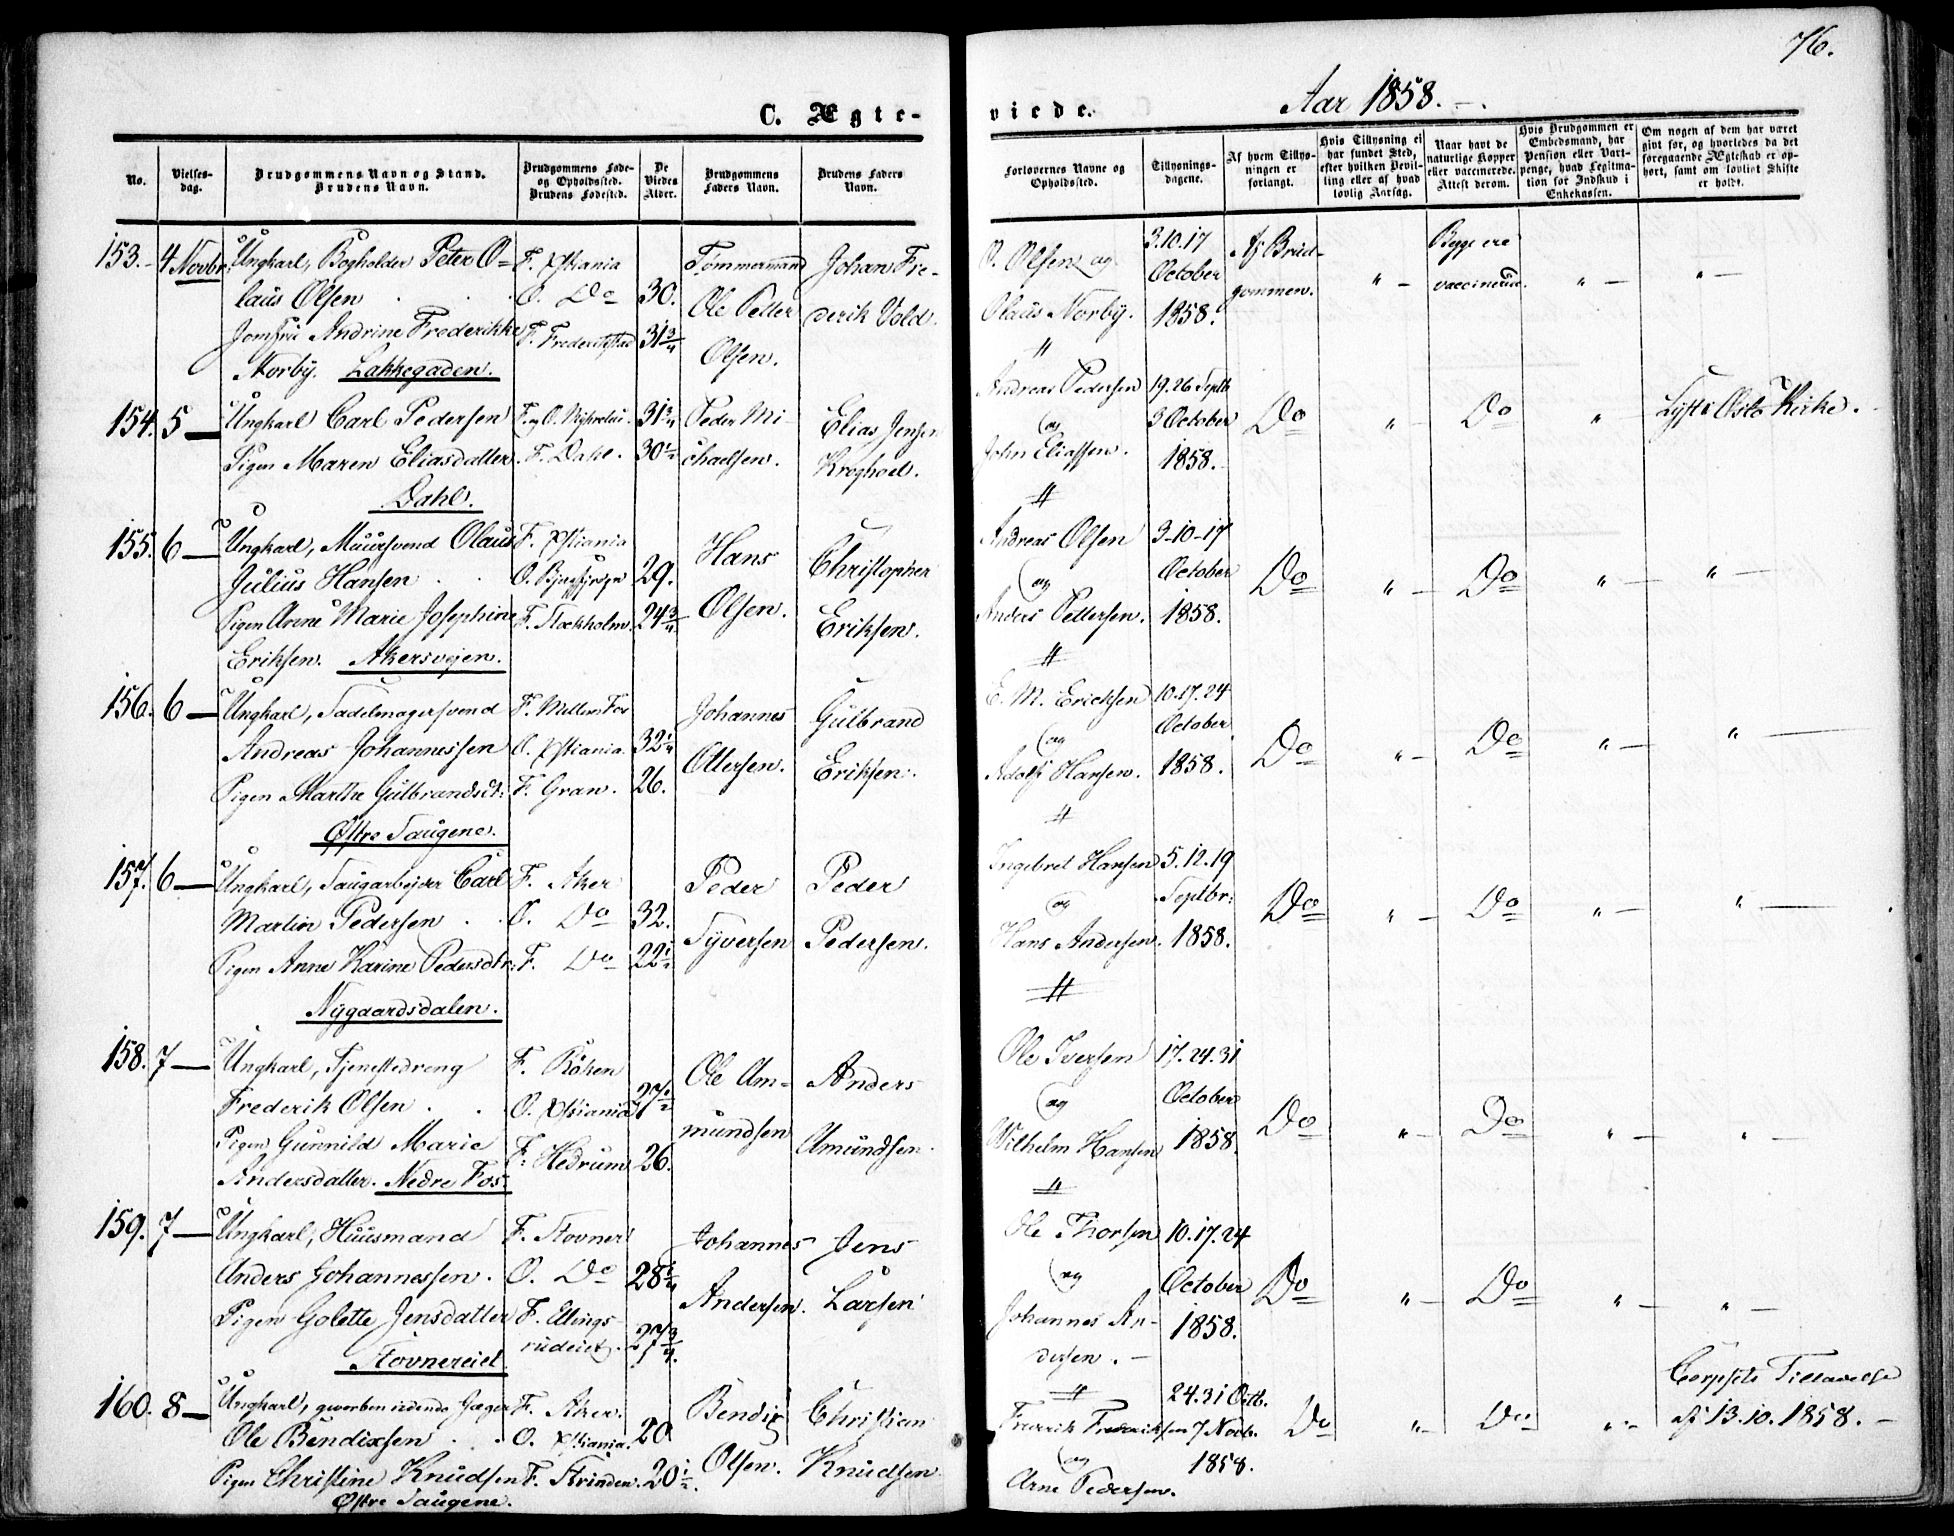 76.
C. Ægte-
viede.
Aar 1858.
No.
Vielses-
dag.
Brudgommens Navn og Stand.
Brudens Navn.
Brudgommens Føde-
og Opholdssted.
Brudens Fødested.
De
Viedes
Alder.
Brudgommens
Faders Navn.
Brudens Faders
Navn.
Forlovernes Navne og
Opholdssted.
Tillysnings-
dagene.
Af hvem Tillys-
ningen er
forlangt.
Hvis Tillysning ei
har fundet Sted,
efter hvilken Bevil-
ling eller af hvad
lovlig Aarsag.
Naar havt de
naturlige Kopper
eller vaccinerede.
Attest derom.
Hvis Brudgommen er
Embedsmand, har
Pension eller Vart-
penge, hvad Legitma-
tion for Indskud i
Enkekassen.
Om nogen af dem har været
gift før, og hvorledes da det
foregaaende Ægteskab er op-
hørt, samt om lovligt Skifte
er holdt.
153. 4 Novbr. Ungkarl, Bogholder Peter O-
laus Olsen
Jomfru Andrine Frederikke
Norby. Lakkegaden.
F. Xstiania
O. Do 30.
F. Frederikstad 31 3/4
Tømmermand
Ole Petter
Olsen.
Johan Fre-
derik Vold.
O. Olsen og
Olaus Norby.
3.10.17
October
1858.
Af Brud-
gommen.
" -
Begge ere
vaccinerede.
" -
" -
154. 5 - Ungkarl Carl Pedersen
Pigen Maren Eliasdatter
Dahl.
31 3/4
F. Dahl. 30 1/2
Peder Mi-
chaelsen.
Elias Jensen
Andreas Pedersen
og
John Eliassen.
19.26 Septb
3 October
1858.
Do " - Do "
Lyst i Oslo Kirke.
155. 6 - Ungkarl, Muursvend Olaus
Julius Hansen
Pigen Anne Marie Josephine
Eriksen. Akersveien.
F. Xstiania
29.
F. Stockholm. 24 3/4
Hans
Olsen.
Christopher
Eriksen.
Andreas Olsen
og
Anders Pettersen.
3-10-17
October
1858.
Do " - Do " - " -
156. 6 - Ungkarl, Sadelmagersvend
Andreas Johannessen
Pigen Marthe Gulbrandsdt:
Østre Saugene.
F. Mellem Fos
O. Xstiania. 32 1/4
F. Gran. 26.
Johannes
Ottersen.
Gulbrand
Eriksen.
E. M. Ericksen
og
Adolf Hansen.
10.17.24
October
1858.
Do " - Do " - " -
157. 6 - Ungkarl, Saugarbejder Carl
Martin Pedersen
Pigen Anne Karine Pedersdtr:
Nygaardsdalen.
F. Aker
O. Do 32.
F. Do 22 1/2
Peder
Syversen
Peder
Pedersen.
Ingebret Hansen
og
Hans Andersen.
5.12.19
Septbr:
1858.
Do " - Do " - " -
158. 7 - Ungkarl, Tjenestedreng
Frederik Olsen
Pigen Gunnild Marie
Andersdatter. Nedre Fos.
F. Röken
O. Xstiania 27 1/2
F. Hedrum 26.
Ole Am-
mundsen
Anders
Amundsen.
Ole Iversen
og
Wilhelm Hansen
17.24.31
October
1858.
Do " - Do " - " -
159. 7 - Ungkarl, Huusmand
Anders Johannessen.
Pigen Golette Jensdatter
Stovnereiet
F. Stovner
O. Do 28 1/4
F. Ellings-
rudeiet. 27 3/4.
Johannes
Andersen.
Jens
Larsen
Ole Thorsen
og
Johannes An-
dersen.
10.17.24
October
1858.
Do " - Do " - " -
160. 8 - Ungkarl, gevorben ridende Jæger
Ole Bendixsen
Pigen Christine Knudsen
Østre Saugene.
F. Aker.
O. Xstiania. 20
F. Strinden. 20 1/2.
Bendix
Olsen.
Christian
Knudsen
Fredrik Fredriksen
og
Arne Pedersen.
24.31 Octb.
7 Novb.
1858.
Do " - Do " -
Corpsets Tilladelse
af 13.10.1858.